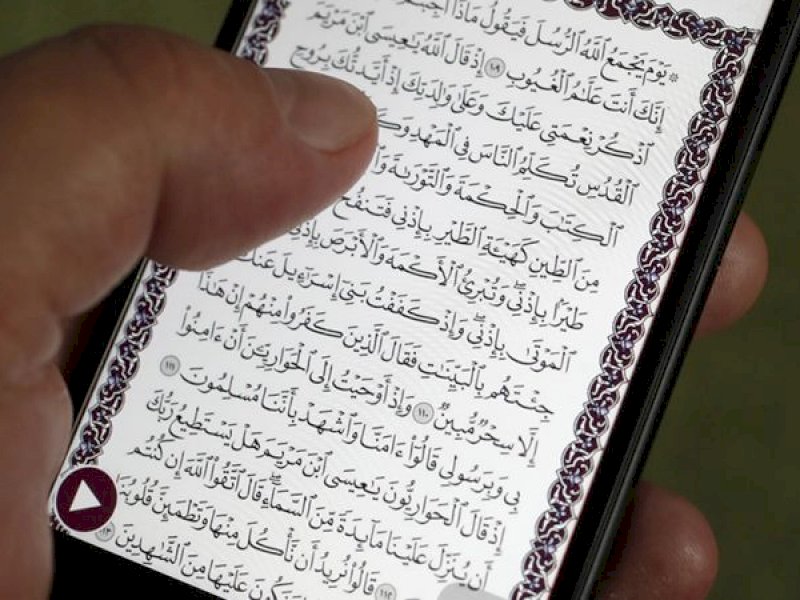 ۞ يَوْمَ يَجْمَعُ ٱللَّهُ ٱلرُّسُلَ فَيَقُولُ مَاذَآ
إِنَّكَ أَنتَ عَلَّٰمُ ٱلْغُيُوبِ ١٠٩ إِذْ قَالَ ٱللَّهُ يَٰعِيسَى ٱبْنَ مَرْيَمَ
ٱذْكُرْ نِعْمَتِى عَلَيْكَ وَعَلَىٰ وَٰلِدَتِكَ إِذْ أَيَّدتُّكَ بِرُوحِ
ٱلْقُدُسِ تُكَلِّمُ ٱلنَّاسَ فِى ٱلْمَهْدِ
ٱلْكِتَٰبَ وَٱلْحِكْمَةَ وَٱلتَّوْرَىٰةَ
مِنَ ٱلطِّينِ كَهَيْـَٔةِ ٱلطَّيْرِ بِإِذْنِى فَتَنفُخُ
طَيْرًۢا بِإِذْنِى وَتُبْرِئُ ٱلْأَكْمَهَ وَٱلْأَبْرَصَ بِإِذْنِى
ٱلْمَوْتَىٰ بِإِذْنِى وَإِذْ كَفَفْتُ بَنِىٓ إِسْرَٰٓءِيلَ عَنكَ
جِئْتَهُم بِٱلْبَيِّنَٰتِ فَقَالَ ٱلَّذِينَ كَفَرُوا۟ مِنْهُمْ إِنْ هَٰذَآ
إِلَّا سِحْرٌ مُّبِينٌ ١١٠ وَإِذْ أَوْحَيْتُ إِلَى ٱلْحَوَارِيِّـۧنَ أَنْ ءَامِنُوا۟
بِى وَبِرَسُولِى قَالُوٓا۟ ءَامَنَّا وَٱشْهَدْ بِأَنَّنَا مُسْلِمُونَ ١١١
إِذْ قَالَ ٱلْحَوَارِيُّونَ يَٰعِيسَى ٱبْنَ مَرْيَمَ هَلْ يَسْتَطِيعُ رَبُّكَ
أَن يُنَزِّلَ عَلَيْنَا مَآئِدَةً مِّنَ ٱلسَّمَآءِ قَالَ ٱتَّقُوا۟ ٱللَّهَ إِن كُنتُم
١١٢ قَالُوا۟ نُرِيدُ أَن نَّأْكُلَ مِنْهَا وَتَطْمَئِنَّ قُلُوبُنَا
وَنَكُونَ عَلَيْهَا مِنَ ٱلشَّٰهِدِينَ ١١٣